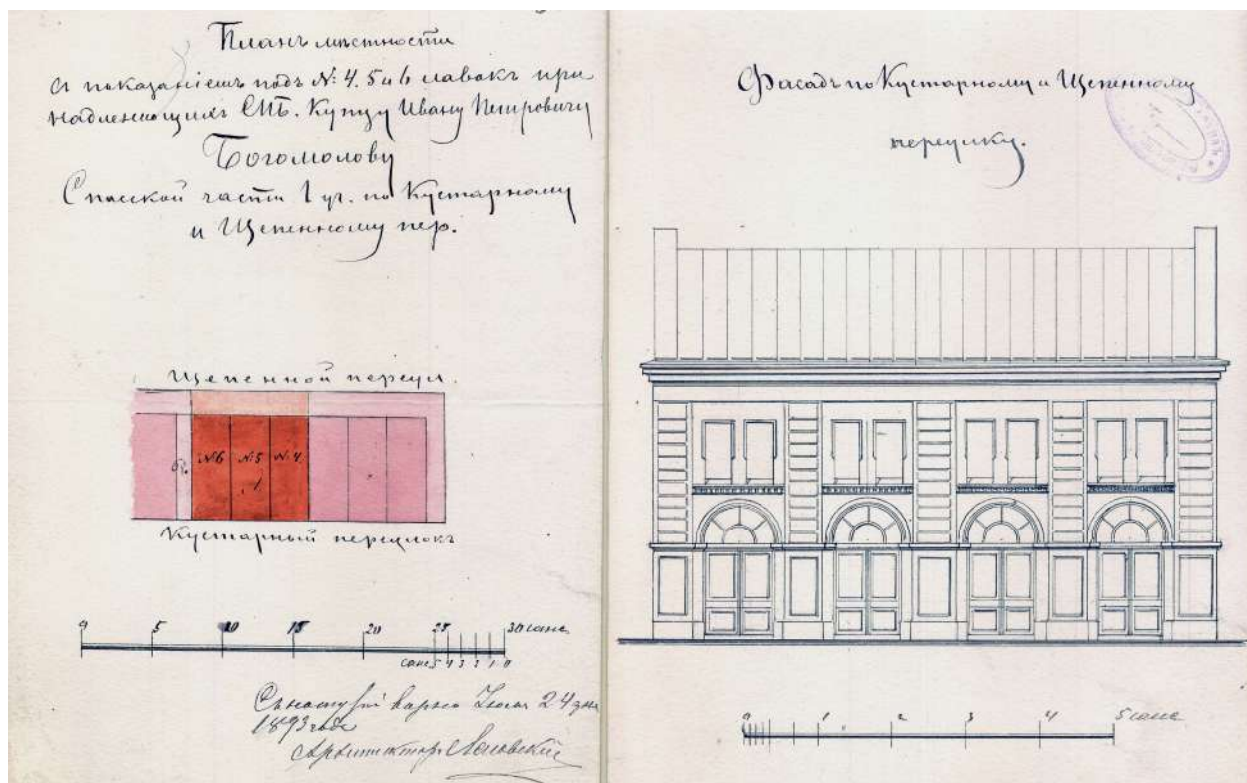 Планъ мѣстности
съ показаніемъ подъ № 4. 5 и 6 лавокъ при
надлежащихъ СПБ. Купцу Ивану Петровичу
Богомолову
Спасской части 1 уч. по Кустарному
и Щепенному пер.
Щепенной переул.
№6 №5 №4
Кустарный переулокъ
0 5 10 15 20 25 30 саж.
саж. 5 4 3 2 1 0
24 дня
1893 года
Архитекторъ
Фасадъ по Кустарному и Щепенному
переулку.
0 1 2 3 4 5 саж.